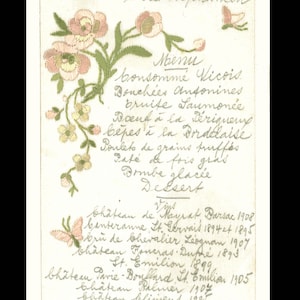 Menu
Consommé Niçois
Bouchées Antonines
Truite Saumonée
Bœuf à la Périgueux
Cèpes à la Bordelaise
Poulets de grains truffés
Paté de fois gras
Bombe glacée
Dessert
Vins
Château de Mayrat Barsac 1908
St Gervais 1894 et 1895
Crû de Chevalier Léognan 1907
Château 1893
St. Emilion 1899
Château Pavie St. Emilion 1905
Château Palmer 1907
Château